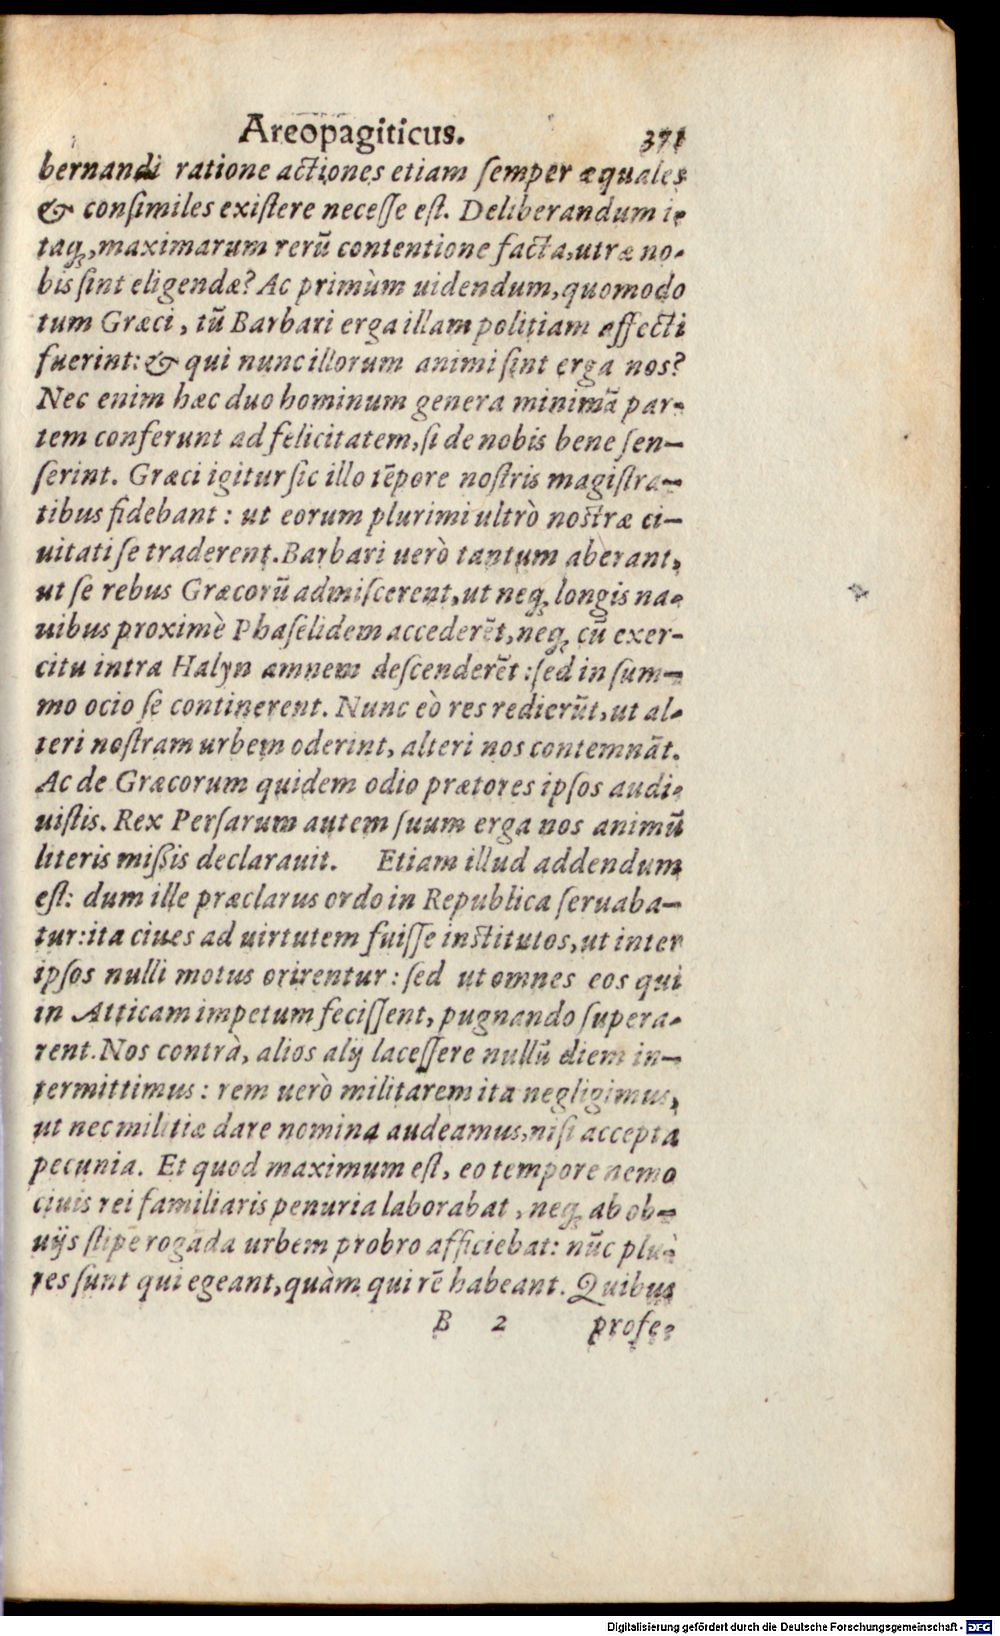 Areopagiticus. 371
bernandi ratione actiones etiam ſemper æquales
& conſimiles exiſtere neceſſe eſt. Deliberandum i-
taq;, maximarum rerū contentione facta, utræ no-
bis ſint eligendæ? Ac primùm uidendum, quomodo
tum Græci, tū Barbari erga illam politiam affecti
fuerint: & qui nunc illorum animi ſint erga nos?
Nec enim hæc duo hominum genera minimā par-
tem conferunt ad felicitatem, ſi de nobis bene ſen-
ſerint. Græci igitur ſic illo tēpore noſtris magiſtra-
tibus fidebant: ut eorum plurimi ultrò noſtræ ci-
uitati ſe traderent. Barbari uerò tantum aberant,
ut ſe rebus Græcorū admiſcerent, ut neq; longis na-
uibus proximè Phaſelidem accederēt, neq; cū exer-
citu intra Halyn amnem deſcenderēt: ſed in ſum-
mo ocio ſe continerent. Nunc eò res redierūt, ut al-
teri noſtram urbem oderint, alteri nos contemnāt.
Ac de Græcorum quidem odio prætores ipſos audi-
uiſtis. Rex Perſarum autem ſuum erga nos animū
literis miſsis declarauit. Etiam illud addendum
eſt: dum ille præclarus ordo in Republica ſeruaba-
tur: ita ciues ad uirtutem fuiſſe inſtitutos, ut inter
ipſos nulli motus orirentur: ſed ut omnes eos qui
in Atticam impetum feciſſent, pugnando ſupera-
rent. Nos contrà, alios alij laceſſere nullū diem in-
termittimus: rem uerò militarem ita negligimus,
ut nec militiæ dare nomina audeamus, niſi accepta
pecunia. Et quod maximum eſt, eo tempore nemo
ciuis rei familiaris penuria laborabat, neq; ab ob-
uijs ſtipē rogāda urbem probro afficiebat: nūc plu-
res ſunt qui egeant, quàm qui rē habeant. Quibus
B 2 profe-
Digitalisierung gefördert durch die Deutsche Forschungsgemeinschaft - DFG